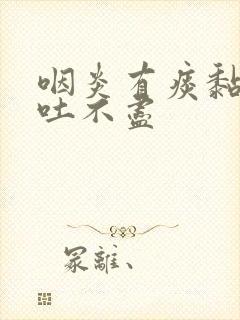 咽炎有痰黏
吐不盡
冢離、